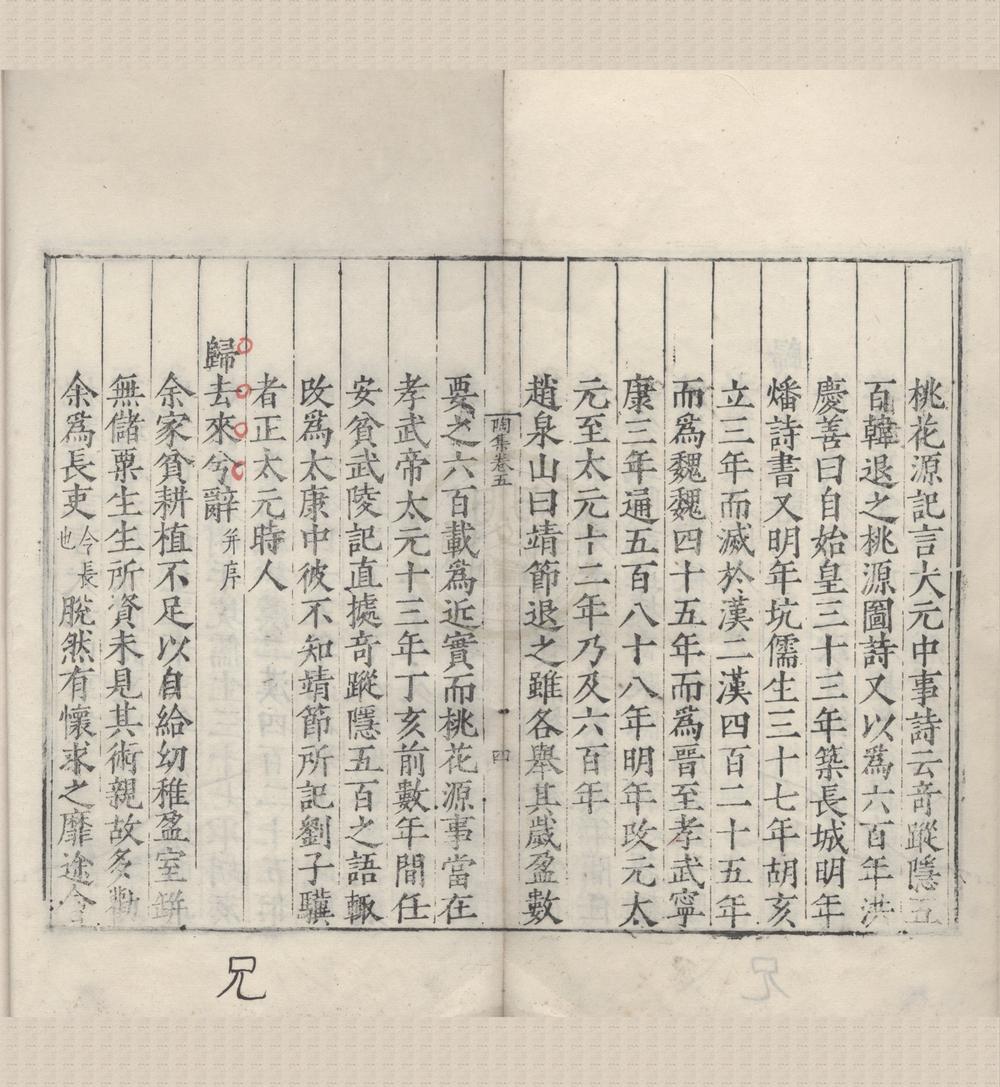 桃花源記言大元中事詩云奇蹤隱五
百韓退之桃源圖詩又以爲六百年洪
慶善曰自始皇三十三年築長城明年
燔詩書又明年坑儒生三十七年胡亥
立三年而滅於漢二漢四百二十五年
而爲魏魏四十五年而爲晉至孝武寧
康三年通五百八十八年明年改元太
元至太元十二年乃及六百年
趙泉山曰靖節退之雖各舉其歲盈數
陶集卷五
四
要之六百載爲近實而桃花源事當在
孝武帝太元十三年丁亥前數年間任
安貧武陵記直據奇蹤隱五百之語輒
改爲太康中彼不知靖節所記劉子驥
者正太元時人
歸去來兮辭并序
余家貧耕植不足以自給幼稚盈室缾
無儲粟生生所資未見其術親故多勸
余爲長吏今長也脫然有懷求之靡途會
兄